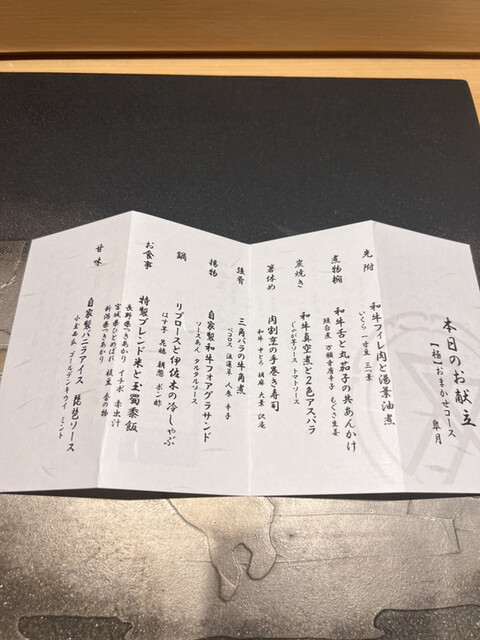 本日のお献立
【極】おまかせコース 皐月
先附
和牛フィレ肉と湯葉油煮
いくら 一寸豆 三つ葉
煮物椀
和牛舌と丸茄子の共あんかけ
翡白煮 万願寺唐辛子 もぐさ生姜
炭焼き
和牛真空煮と2色アスパラ
じゃが芋ソース トマトソース
箸休め
肉割烹の手巻き寿司
和牛 中とろ 胡麻 大葉 沢庵
強肴
三角バラの牛角煮
ペコロス 法蓮草 人参 辛子
揚物
自家製和牛フォアグラサンド
ソースあん タルタルソース
鍋
リブロースと伊佐木の冷しゃぶ
はす芋 花穂 朝葱 ポン酢
お食事
特製ブレンド米と玉蜀黍飯
長野県つきあかり イチボ 赤出汁
宮城県ひとめぼれ 枝豆 香の物
新潟県つきあかり
甘味
自家製バニラアイス 琵琶ソース
小玉西瓜 ゴールデンキウイ ミント